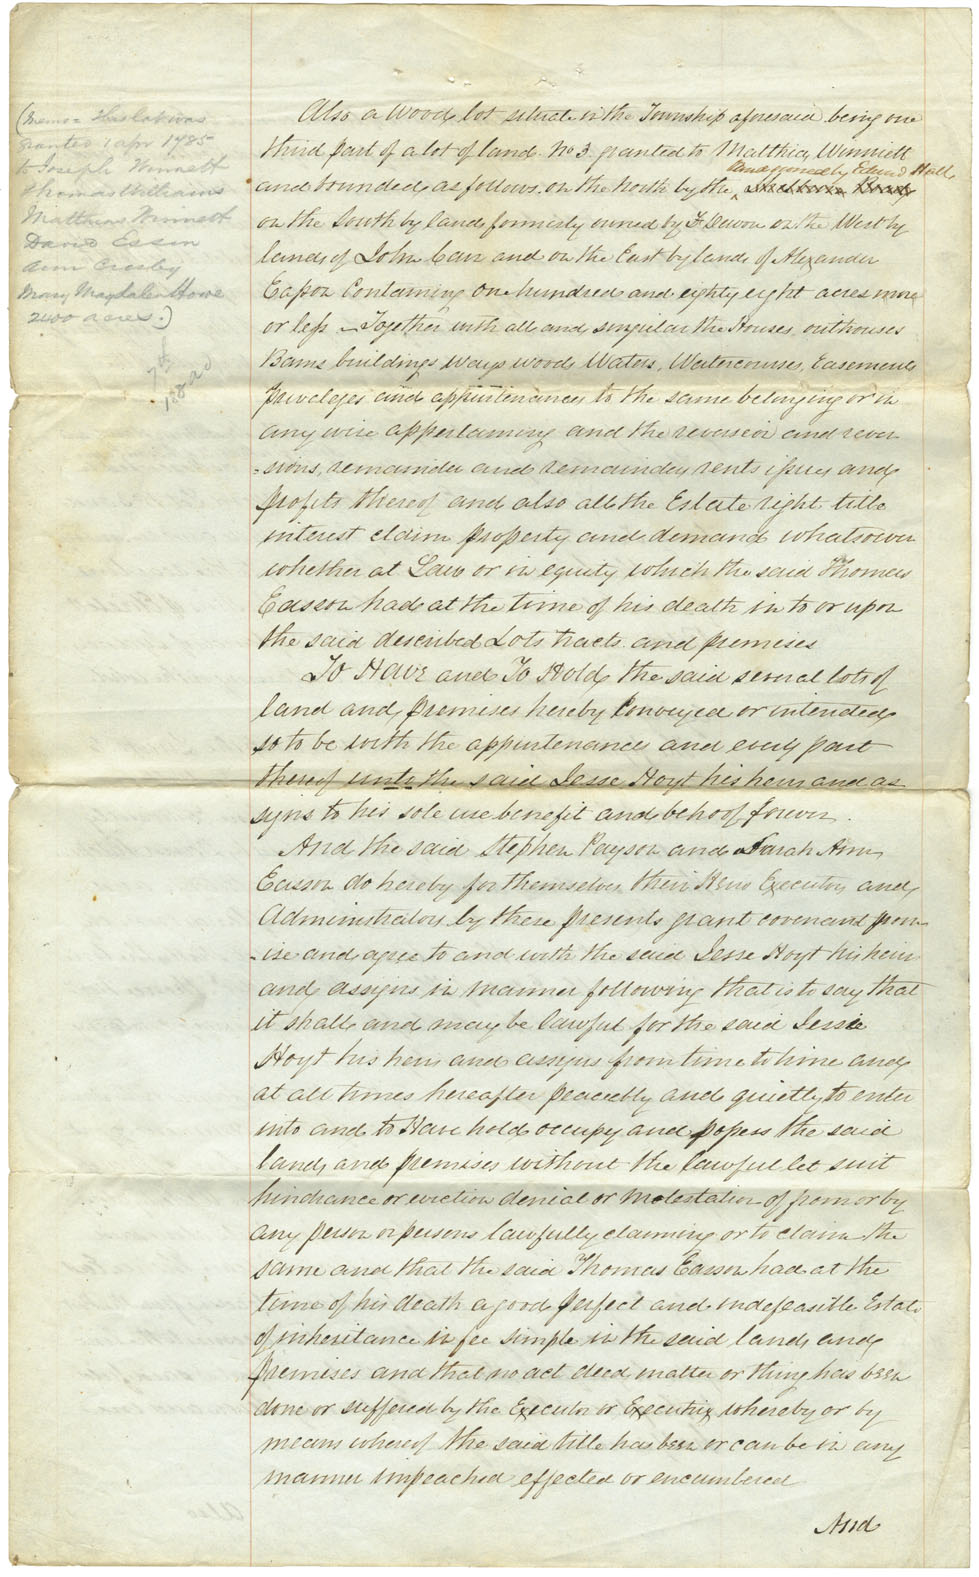 (Memo= this lot was
granted 1 apr 1785
to Joseph Winnett
Thomas Williams
Matthias Winnett
David Essen
Ann Crosby
Mary Magdalen Howe
2400 acres.)
Also a Wood lot situate in the Township aforesaid being one
third part of a lot of land No 3 granted to Matthias Winniett
land owned by Edward Hall
and bounded as follows. on the North by the Shelburn Road
on the South by lands formerly owned by F. Devon on the West by
lands of John Carr and on the East by lands of Alexander
Easson Containing One hundred and eighty eight acres more
or less - Together with all and singular the Houses, outhouses
Barns buildings ways woods Waters, Watercourses, Easements
Privileges and appurtenances to the same belonging or in
any wise appertaining and the reversion and rever
=sions, remainder and remainders rents issues and
profits thereof and also all the Estate right title
interest claim property and demand whatsoever
whether at Law or in equity which the said Thomas
Easson had at the time of his death in to or upon
the said described Lots tracts and premises
To Have and To Hold the said several lots of
land and premises hereby Conveyed or intended
so to be with the appurtenances and every part
thereof unto the said Jesse Hoyt his heirs and as
signs to his sole use benefit and behoof forever.
And the said Stephen Payson and Sarah Ann
Easson do hereby for themselves their Heirs Executors and
Administrators by these presents grant covenant prom
-ise and agree to and with the said Jesse Hoyt his heirs
and assigns in manner following that is to say that
it shall and may be lawful for the said Jessie
Hoyt his heirs and assigns from time to time and
at all times hereafter peaceably and quietly to enter
into and to Have hold occupy and possess the said
lands and premises without the lawful let suit
hindrance or eviction denial or molestation of from or by
any person or persons lawfully claiming or to claim the
same and that the said Thomas Easson had at the
time of his death a good perfect and indefeasible Estate
of inheritance in fee simple in the said lands and
premises and that no act deed matter or thing has been
done or suffered by the Executor or Executrix whereby or by
means whereof the said title has been or can be in any
manner impeached effected or encumbered
And